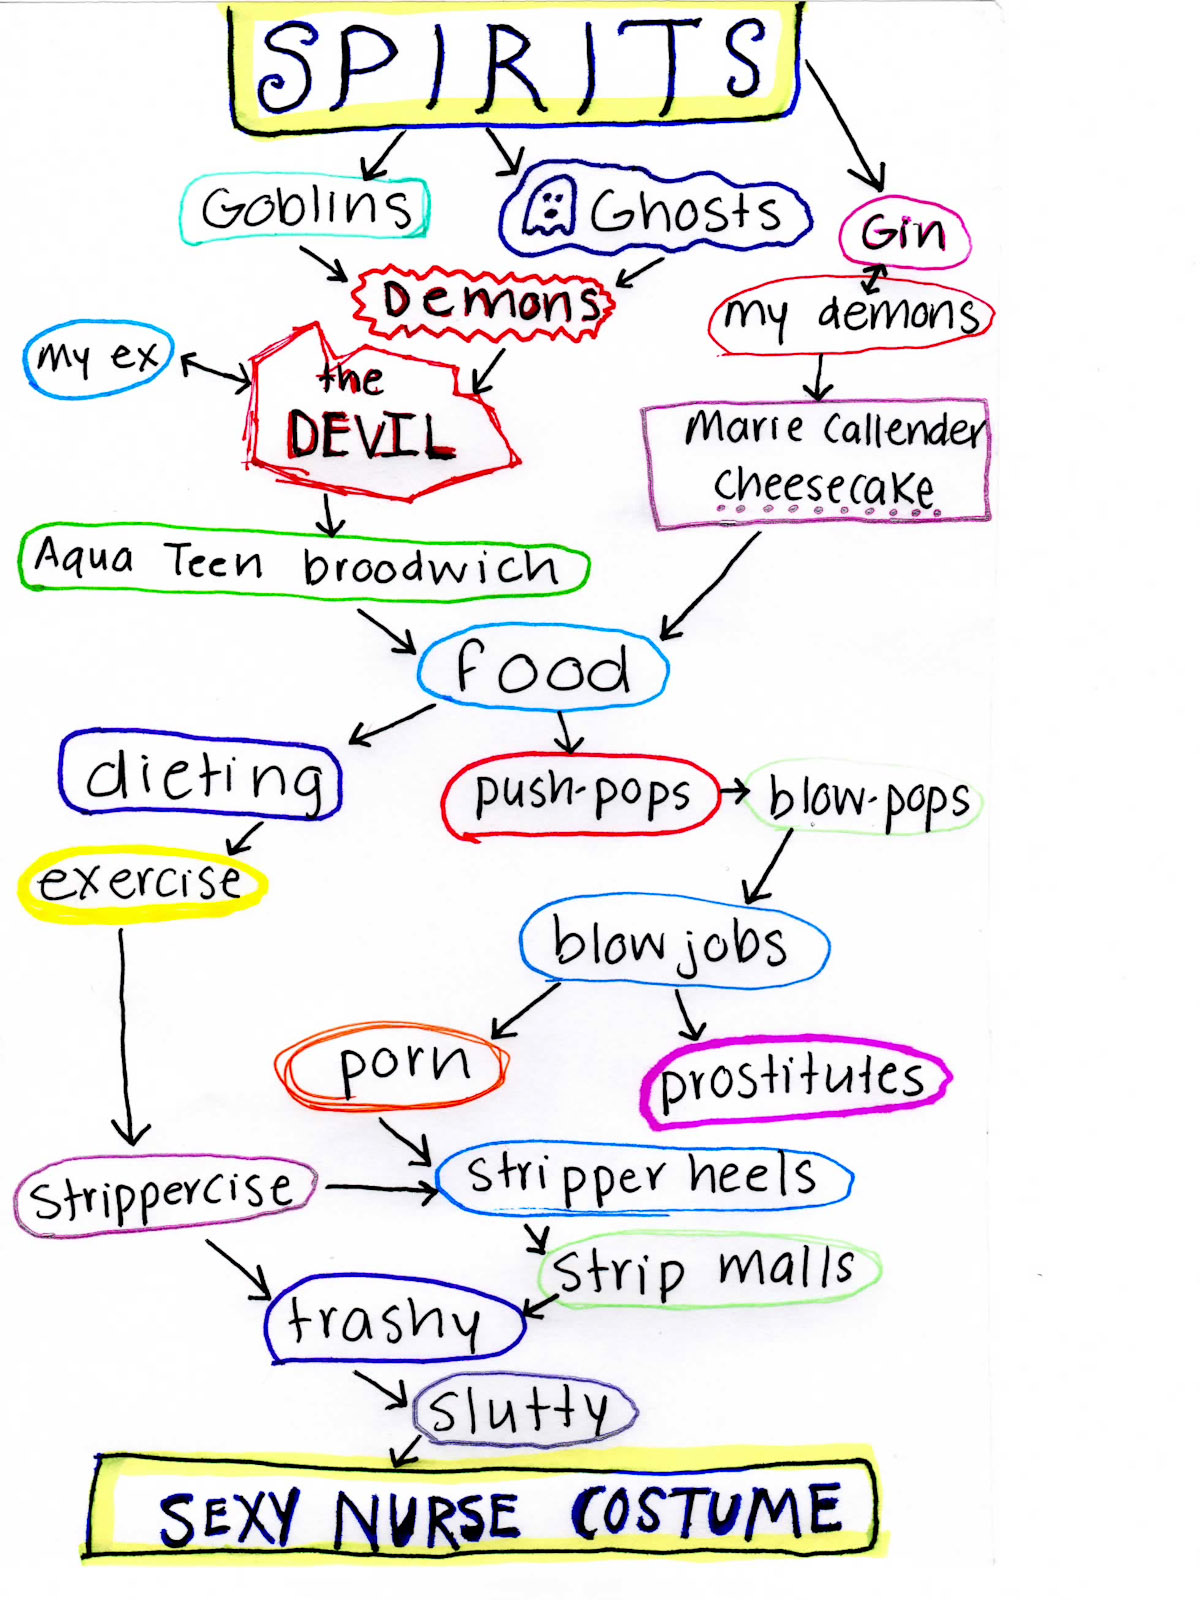 SPIRITS
Goblins
Ghosts
Gin
Demons
my demons
my ex
the
DEVIL
Marie Callender
cheesecake
Aqua Teen broodwich
food
dieting
push-pops
blow-pops
exercise
blow jobs
porn
prostitutes
strippercise
stripper heels
strip malls
trashy
slutty
SEXY NURSE COSTUME